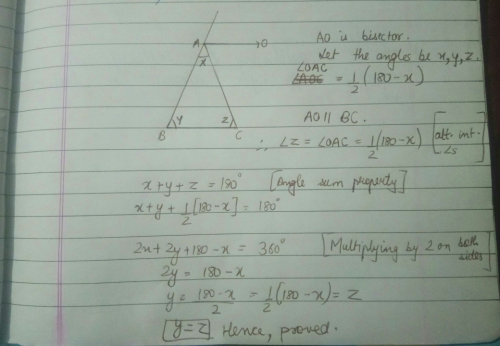 AO is bisector.
Let the angles be x, y, z.
∠OAC = 1/2 (180-x)
AO || BC.
∴ ∠z = ∠OAC = 1/2 (180-x) [alt. int. ∠s]
A
O
x
B
y
z
C
x+y+z = 180° [Angle sum property]
x+y+ 1/2 [180-x] = 180°
2x + 2y + 180 - x = 360° [Multiplying by 2 on both sides]
2y = 180 - x
y = 180-x/2 = 1/2 (180-x) = z
y=z. Hence, proved.